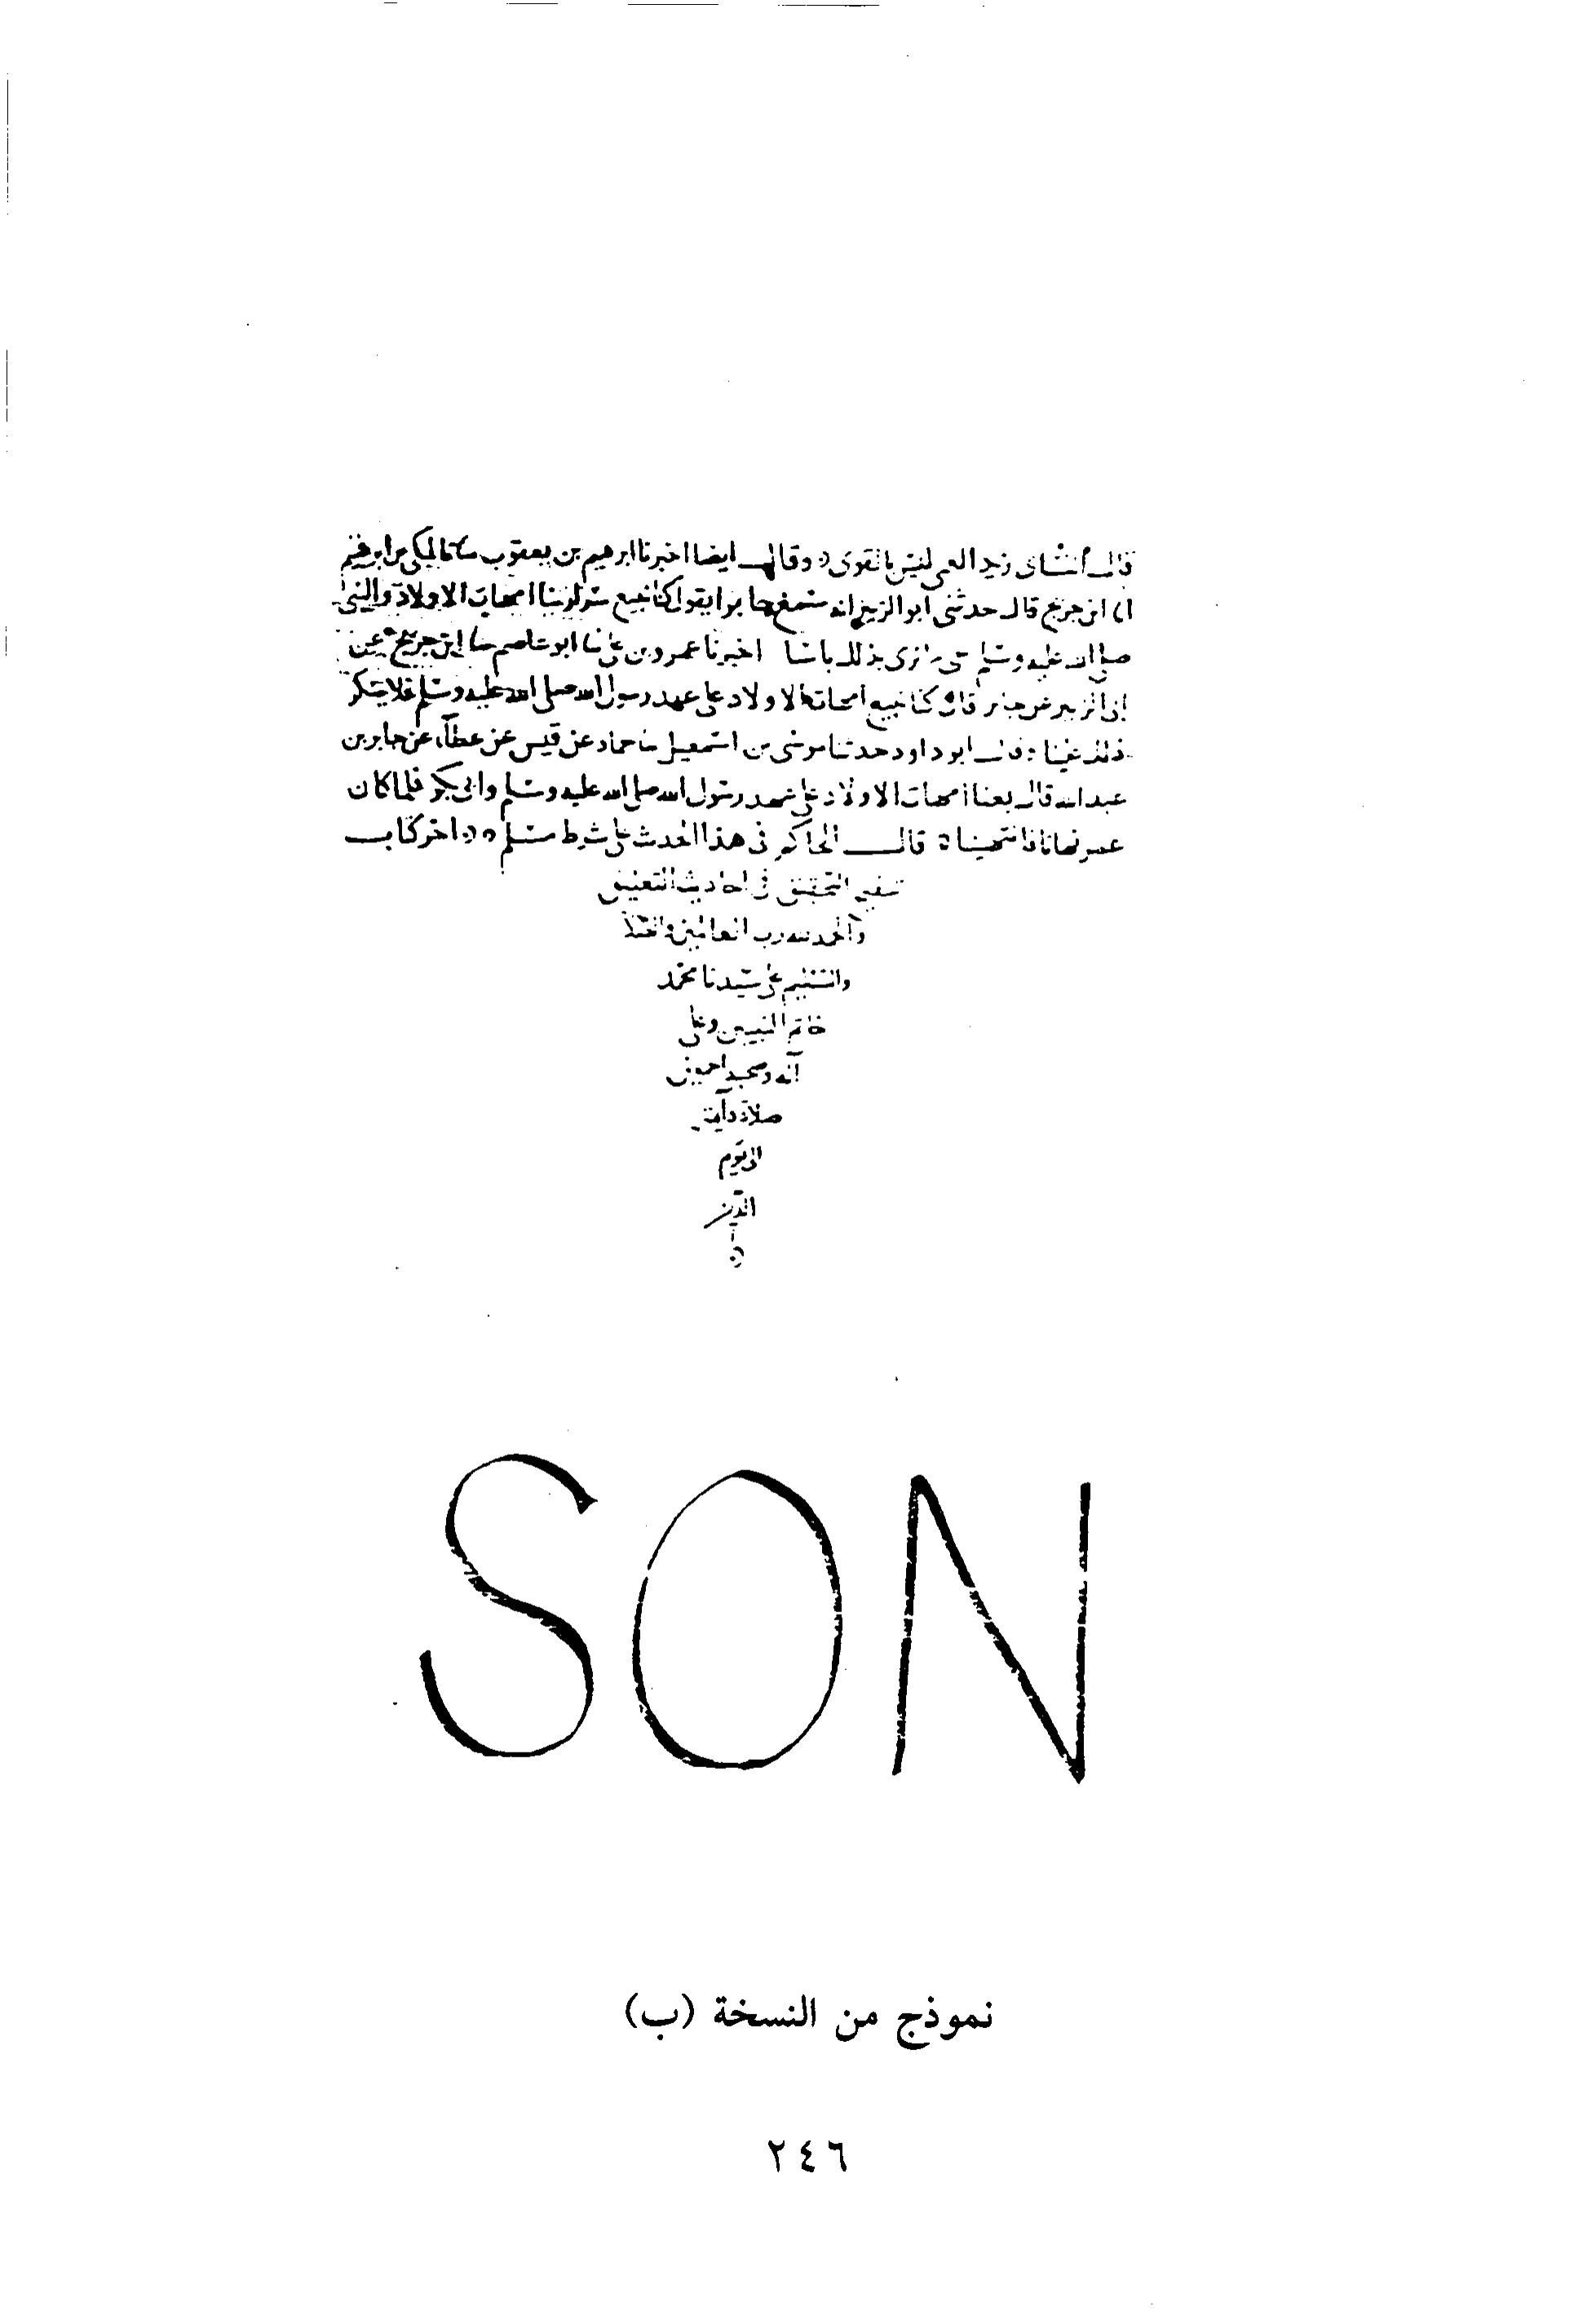 قال النسائي زيد العمي ليس بالقوي وقال ايضا اخبرنا ابرهيم بن يعقوب المكي بن ابرهيم
ابن جريج قال حدثني ابو الزبير انه سمع جابرا يقول كنا نبيع سرارينا امهات الاولاد والنبي
صلى الله عليه وسلم حي نرى بذلك باسا اخبرنا عمرو بن علي ابو عاصم ابن جريج عن
ابي الزبير عن جابر قال كنا نبيع امهات الاولاد على عهد رسول الله صلى الله عليه وسلم فلا ينكر
ذلك علينا قال ابو داود حدثنا موسى بن اسمعيل حماد عن قيس عن عطاء عن جابر بن
عبد الله قال بعنا امهات الاولاد على عهد رسول الله صلى الله عليه وسلم وابي بكر فلما كان
عمر نهانا فانتهينا قال الحاكم في هذا الحديث على شرط مسلم اخر كتاب
تنقيح التحقيق في احاديث التعليق
والحمد لله رب العالمين
والتسليم على سيدنا محمد
خاتم النبيين وعلى
آله وصحبه اجمعين
صلاة دائمة
الى يوم
الدين
SON
نموذج من النسخة (ب)
٢٤٦